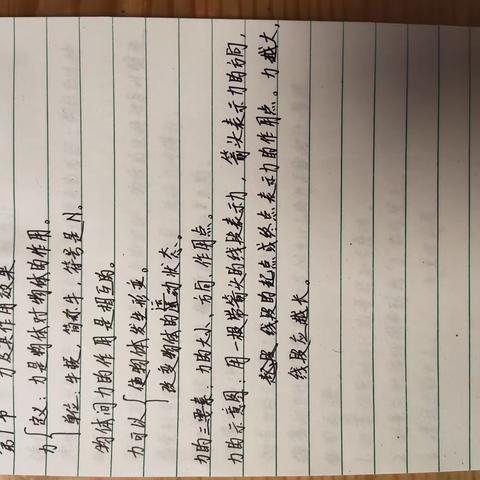 第1节 力及其作用效果
力{定义：力是物体对物体的作用。
单位：牛顿，简称牛，符号是N。
物体间力的作用是相互的。
力可以{使物体发生形变。
改变物体的运动状态。
力的三要素：力的大小、方向、作用点。
力的示意图：用一根带箭头的线段表示力，箭头表示力的方向，
线段的起点或终点表示力的作用点。力越大，
线段应越长。